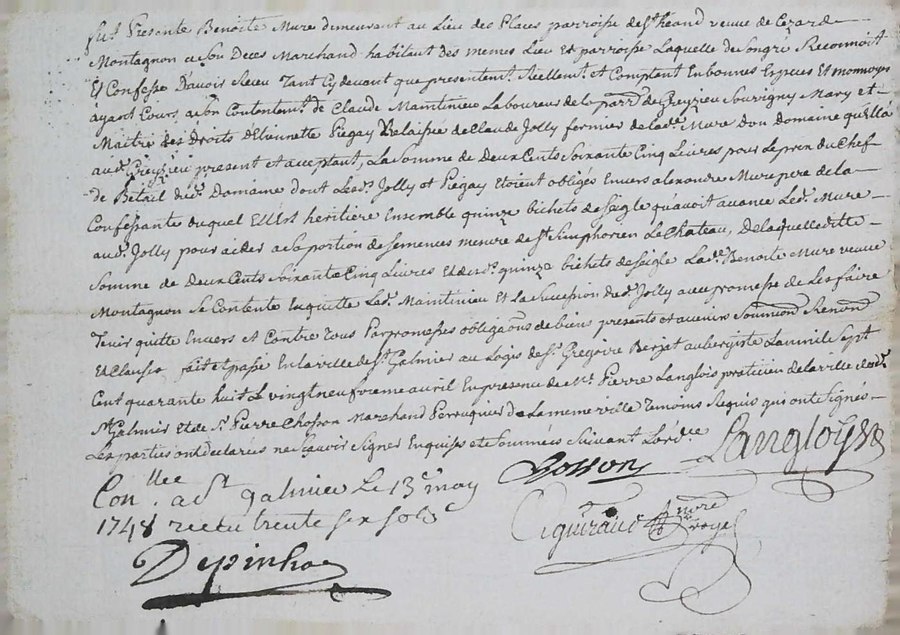 fut Presente Benoiste Mure demeurant au Lieu des Places parroisse de St heand veuve de Cezard
Montagnon a Son Deces Marchand habitant des memes Lieu Et parroisse Laquelle de Son gré Reconnoit
Et Confesse D'avoir Receu Tant Cy devant que presentemt. Reellemt. et Comptant En bonnes Especes Et monnoye
ayant Cours, a Son Contentemt. de Claude Maintinieu Laboureur de la parr. de Greyzieu Souvigny Mary et
Maitre des Droits d'Ennette Piegay Relaissée de Claude Jolly fermier de lad. Mure D'un Domaine qu'Ell'a
aud. Greyzieu present et acceptant, La Somme de Deux Cents Soixante Cinq Livres pour Le prix du Chef
de Betail dud. Domaine dont Lesd. Jolly et Piegay Etoient obligés Envers alexandre Mure pere de la
Confessante duquel Ell'Est heritiere Ensemble quinze bichets de Seigle qu'avoit avancé Led. Mure
aud. Jolly pour aider a Sa portion de Semences mesure de St. Simphorien Le Chateau, De laquelle ditte
Somme de Deux Cents Soixante Cinq Livres Et desd. quinze bichets de Seigle Lade. Benoiste Mure veuve
Montagnon Se Contente En quitte Led. Maintinieu Et La Succession dud. Jolly avec promesse de Les faire
Tenir quitte Envers et Contre Tous Par promesses obligaons de biens presents et avenir Soumions Renonons
Et Clauses fait et passé En la ville de St. Galmier au Logis de Sr. Gregoire Berjet aubergiste L'an mil Sept
Cent quarante huit Le vingt neufvieme avril En presence de Mr. Pierre Langlois praticien de la ville de
St. Galmier Et de Sr. Pierre Chosson Marchand Perruquier De la meme ville Temoins Requis qui ont Signés
Les parties ont declarées ne Scavoir Signer Enquises et Sommées Suivant L'ordce.
Con.llee a St galmier Le 13e may
1748 receu trente six sols
Chosson Langloys
Depinhac